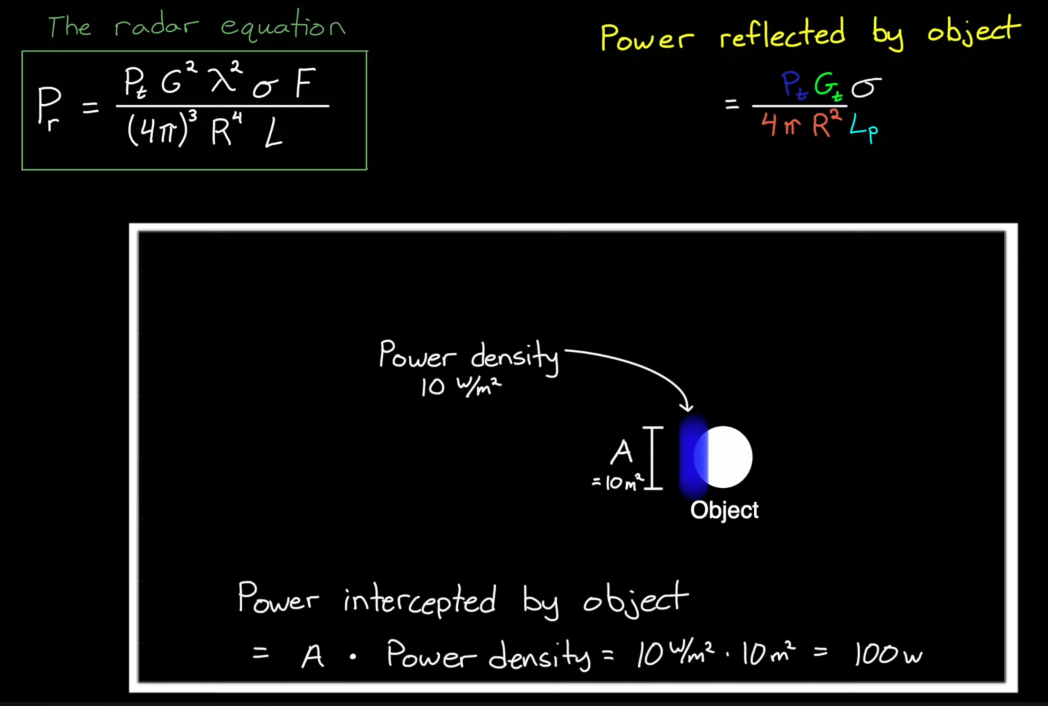 The radar equation
P_r = P_t G² λ² σ F / (4π)³ R⁴ L
Power reflected by object
= P_t G_t σ / 4π R² L_p
Power density
10 W/m²
A
= 10 m²
Object
Power intercepted by object
= A · Power density = 10 W/m² · 10 m² = 100 W